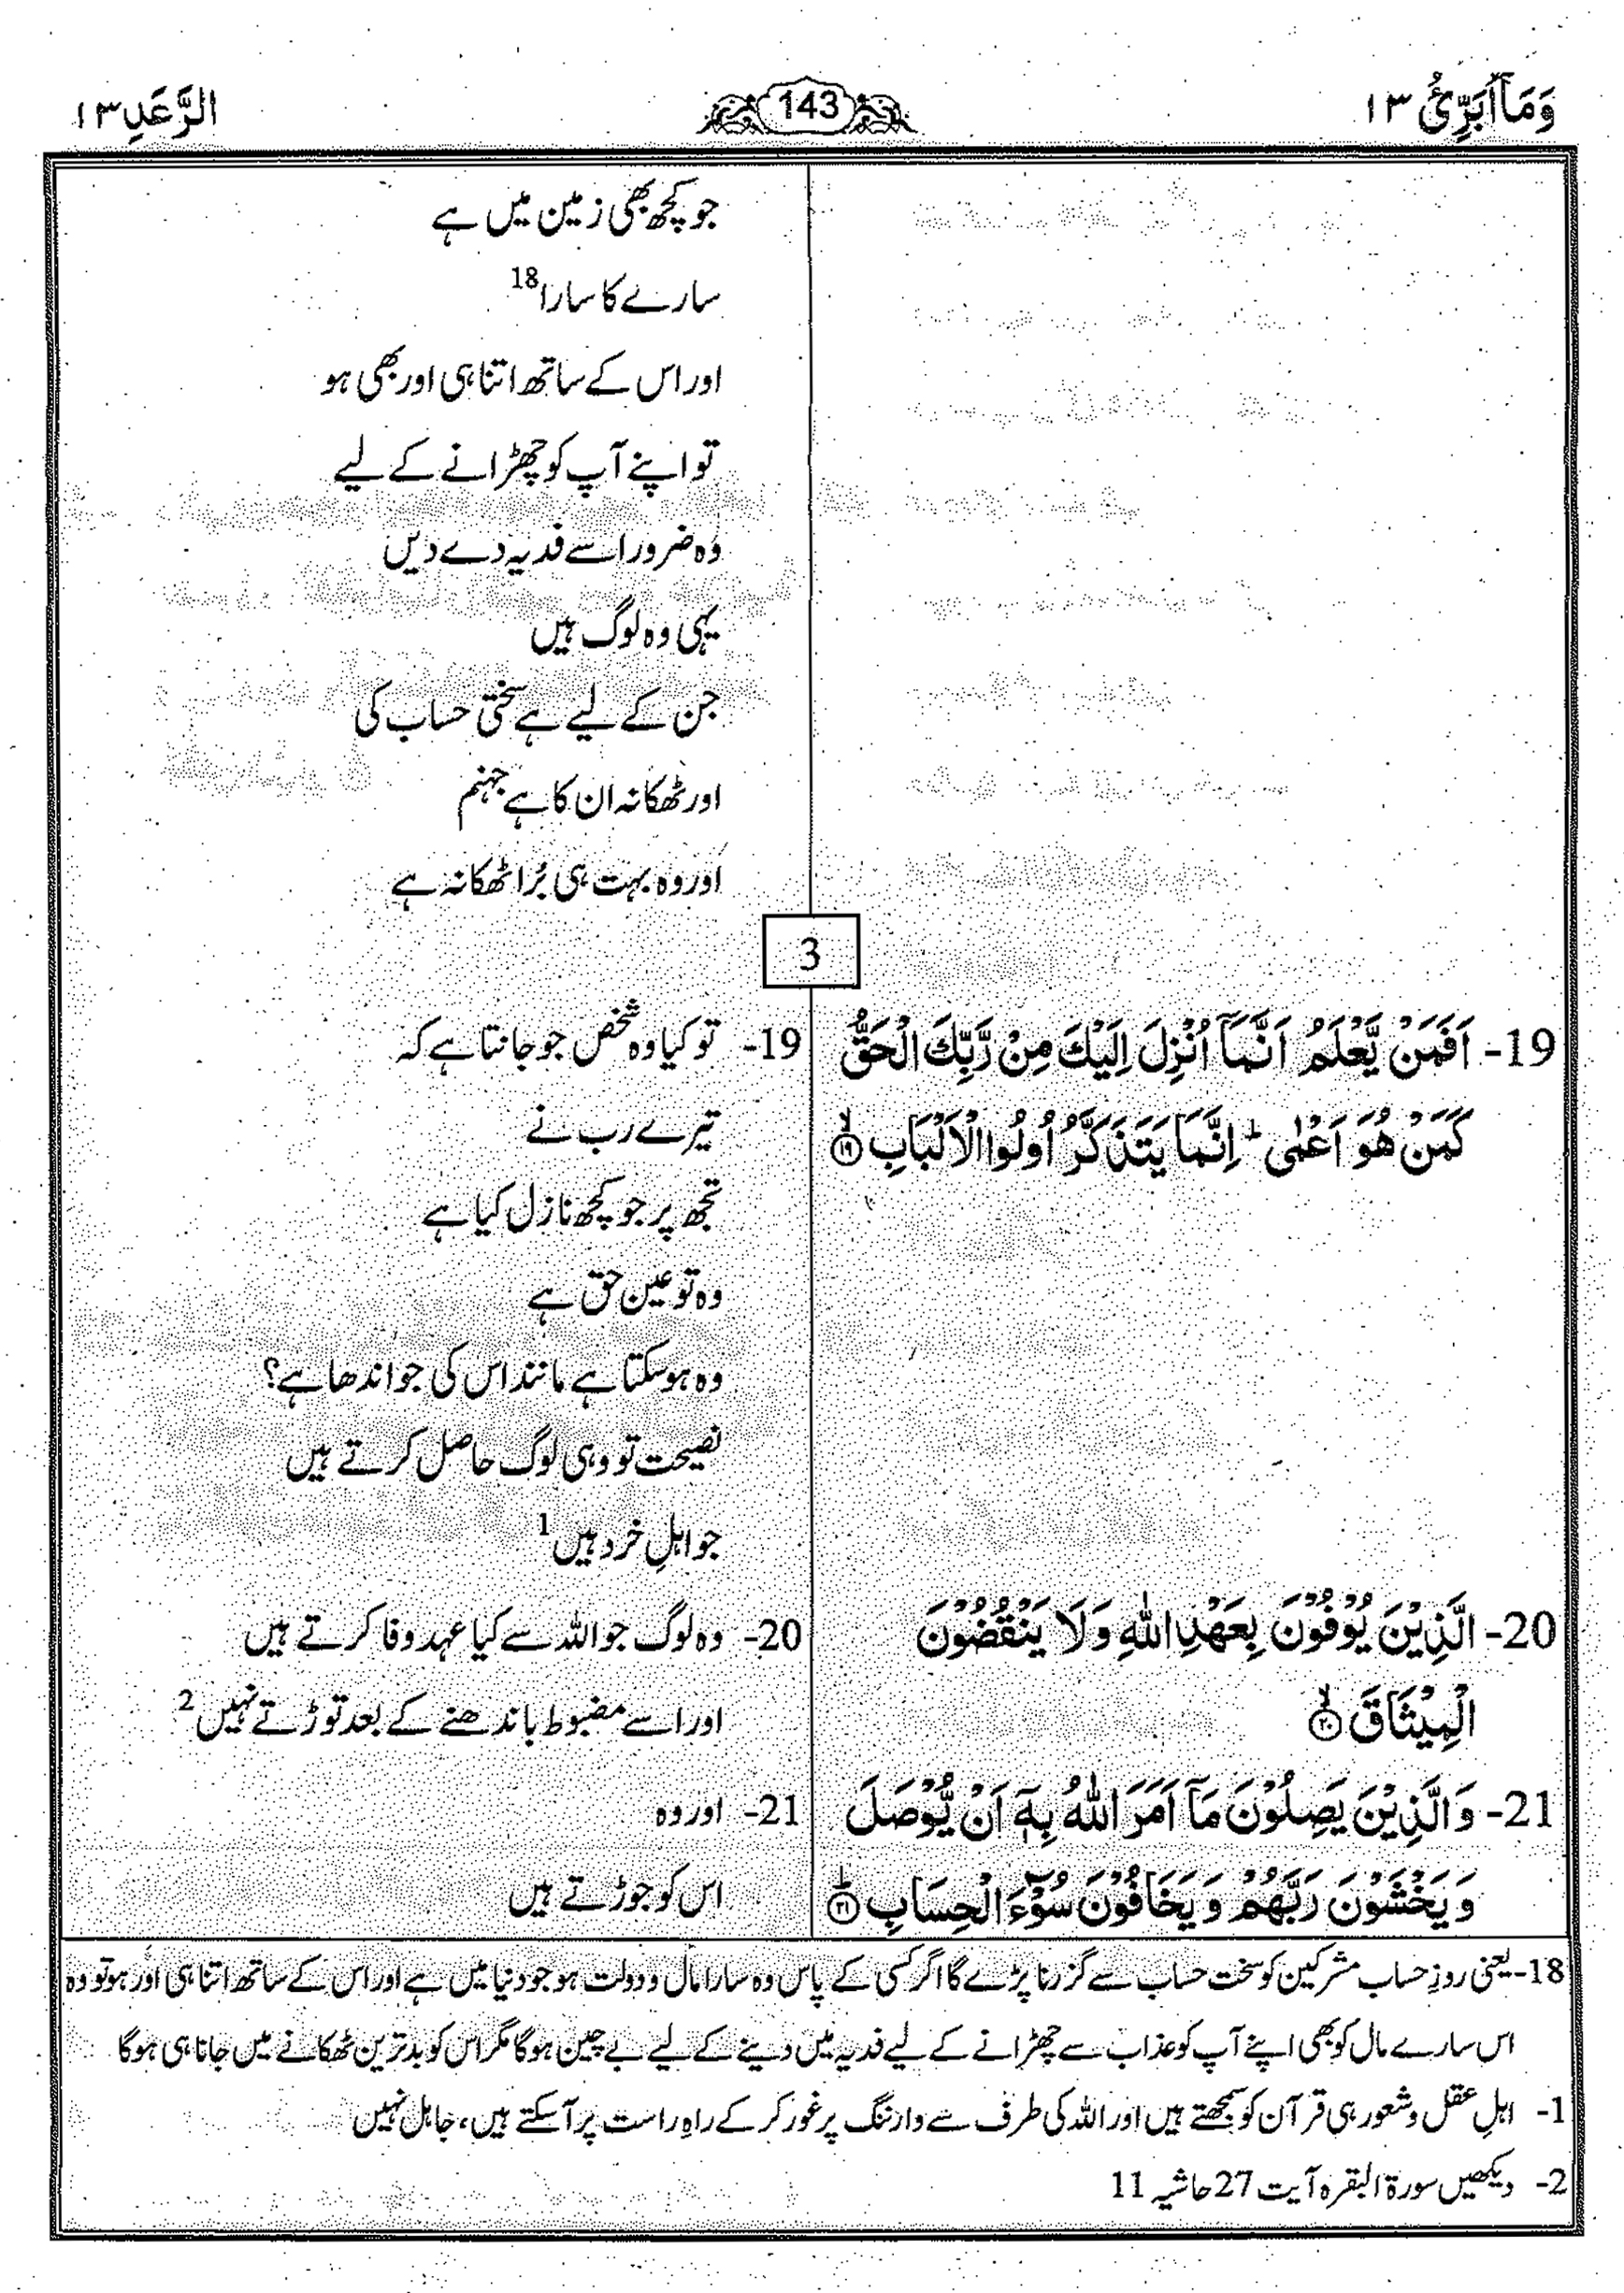 وَمَآ اُبَرِّیُٔ ۱۳
143
الرَّعَدِ ۱۳
جو کچھ بھی زمین میں ہے
سارے کا سارا 18
اور اس کے ساتھ اتنا ہی اور بھی ہو
تو اپنے آپ کو چھڑانے کے لیے
وہ ضرور اسے فدیہ دے دیں
یہی وہ لوگ ہیں
جن کے لیے ہے سختی حساب کی
اور ٹھکانہ ان کا ہے جہنم
اور وہ بہت ہی بُرا ٹھکانہ ہے
3
19- اَفَمَنْ یَّعْلَمُ اَنَّمَآ اُنْزِلَ اِلَیْكَ مِنْ رَّبِّكَ الْحَقُّ
كَمَنْ هُوَ اَعْمٰی ؕ اِنَّمَا یَتَذَكَّرُ اُولُوا الْاَلْبَابِ ۙ۱۹
19- تو کیا وہ شخص جو جانتا ہے کہ
تیرے رب نے
تجھ پر جو کچھ نازل کیا ہے
وہ تو عین حق ہے
وہ ہو سکتا ہے مانند اس کی جو اندھا ہے؟
نصیحت تو وہی لوگ حاصل کرتے ہیں
جو اہلِ خرد ہیں 1
20- الَّذِیْنَ یُوْفُوْنَ بِعَهْدِ اللّٰهِ وَلَا یَنْقُضُوْنَ
الْمِیْثَاقَ ۙ۲۰
20- وہ لوگ جو اللہ سے کیا عہد وفا کرتے ہیں
اور اسے مضبوط باندھنے کے بعد توڑتے نہیں 2
21- وَالَّذِیْنَ یَصِلُوْنَ مَآ اَمَرَ اللّٰهُ بِهٖۤ اَنْ یُّوْصَلَ
وَیَخْشَوْنَ رَبَّهُمْ وَیَخَافُوْنَ سُوْٓءَ الْحِسَابِ ؕ۲۱
21- اور وہ
اس کو جوڑتے ہیں
18- یعنی روزِ حساب مشرکین کو سخت حساب سے گزرنا پڑے گا اگر کسی کے پاس وہ سارا مال و دولت ہو جو دنیا میں ہے اور اس کے ساتھ اتنا ہی اور ہو تو وہ
اس سارے مال کو بھی اپنے آپ کو عذاب سے چھڑانے کے لیے فدیہ میں دینے کے لیے بے چین ہوگا مگر اس کو بدترین ٹھکانے میں جانا ہی ہوگا
1- اہلِ عقل و شعور ہی قرآن کو سمجھتے ہیں اور اللہ کی طرف سے وارننگ پر غور کر کے راہِ راست پر آسکتے ہیں، جاہل نہیں
2- دیکھیں سورۃ البقرہ آیت 27 حاشیہ 11